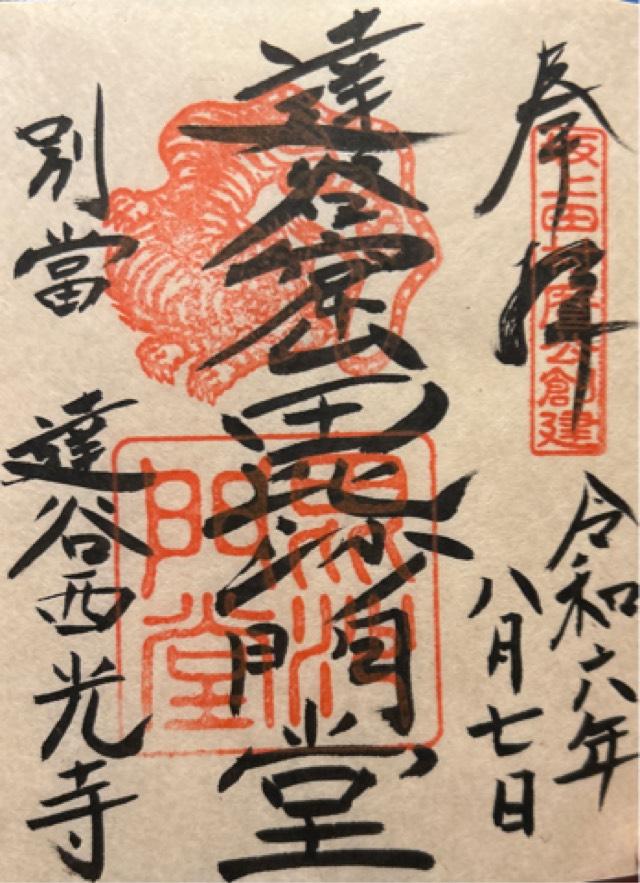 奉拝
坂上田村麿公創建
令和六年
八月七日
達谷窟毘沙門堂
毘沙
門堂
別當
達谷西光寺